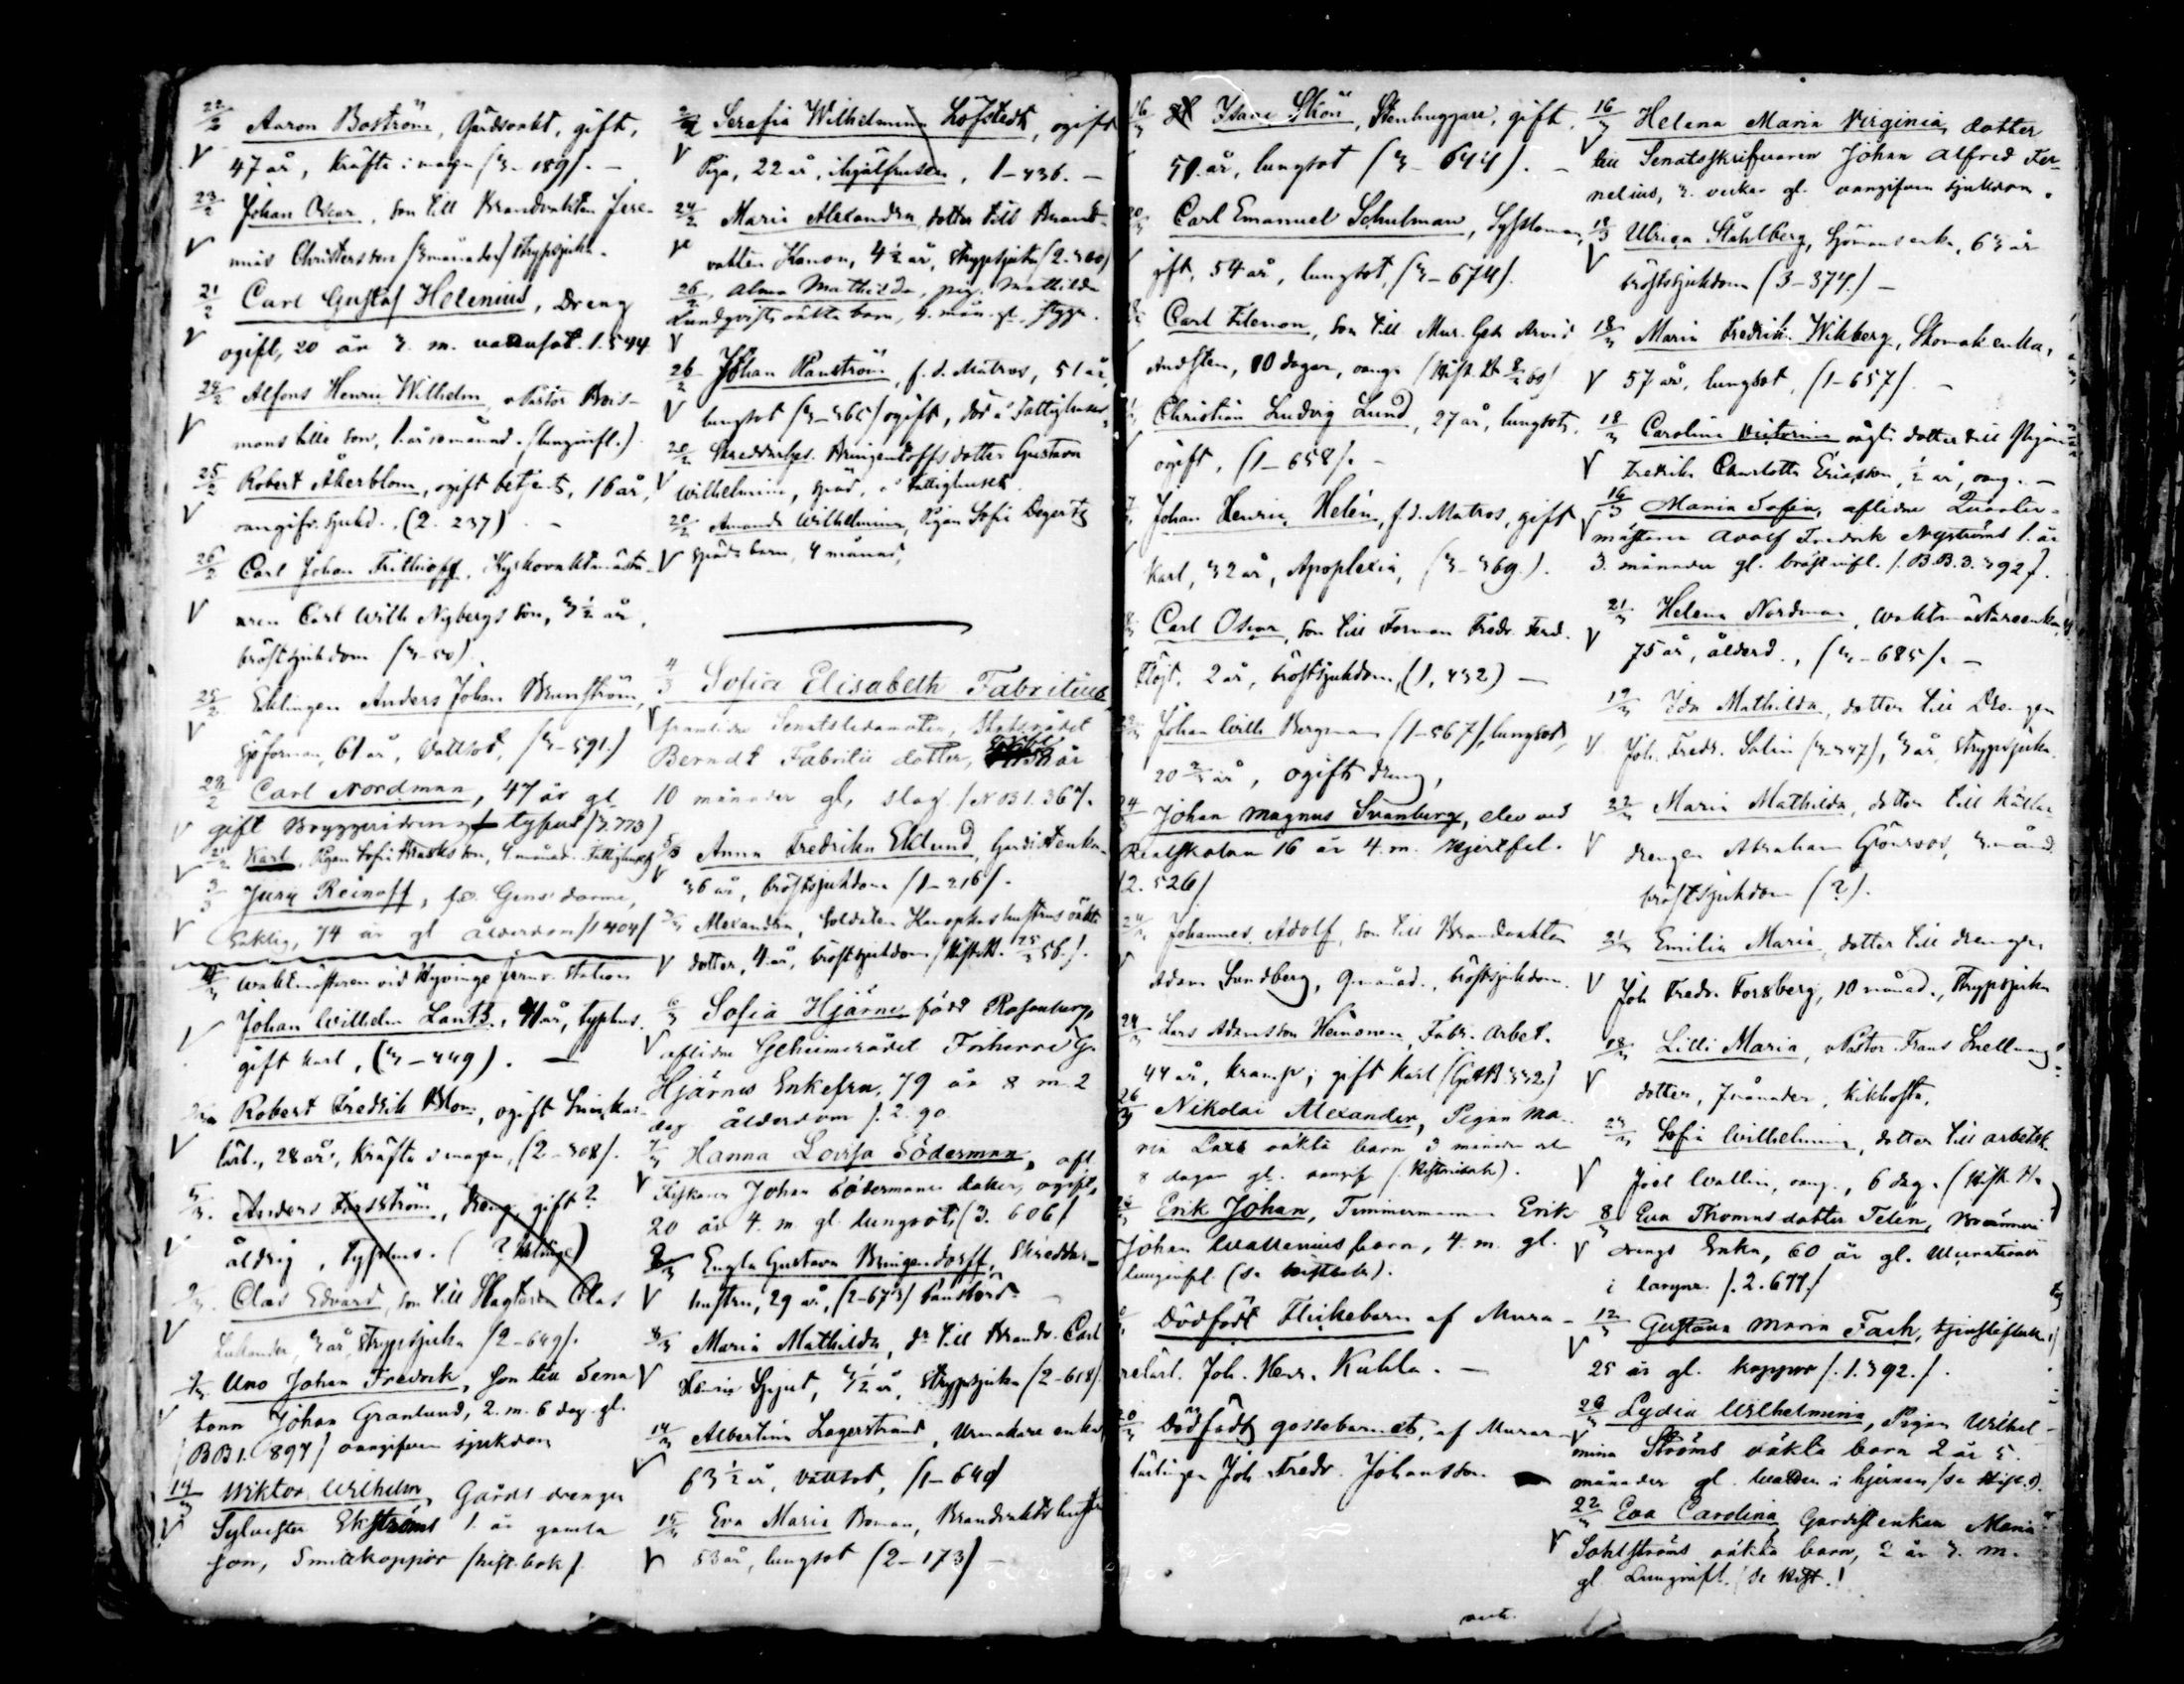 22/2 Aaron Boström, Gårdsvakt, gift,
47 år, kräfta i magen (3-189). -
23/2 Johan Oskar, son till Brandvakten Jere-
mias Christersson (3 månader) strypsjuka.
21/2 Carl Gustaf Helenius, Dreng
ogift, 20 år 3. m. 1.544
24/2 Alfons Henric Wilhelm, Pastor
mans lille son, 1. år 10 månad. (lunginfl.)
25/2 Robert Åkerblom, ogift betjent, 16 år,
oangifv. sjukd.. (2. 237) -
26/2 Carl Johan Frithioff,
aren Carl Wilh Nybergs son, 3 1/2 år,
bröstsjukdom (3-50)
25/2 Enklingen Anders Johan Brunström,
61 år, Vattsot, (3-591.)
28/2 Carl Nordman, 47 år gl
gift Bryggeridreng typus (3.773)
Karl, Pigan Sofia son, 4 månad. Fattighuset
3/3 Jurij Reinoff, f.d. Gens'darme,
Enklig, 74 år gl ålderdom (1 404)
4/3 waktmästaren vid Hyvinge Jernv. station
Johan Wilhelm Lantz, 41 år, typhus.
gift karl, (3-449). -
Robert Fredrik Blom, ogift
lärl., 28 år, kräfta i magen, (2-308).
5/3. Anders Forsström, dreng, gift?
åldrig, Typhus. (? )
Clas Edvard, son till Clas
3 år, strypsjuka (2-649).
Uno Johan Fredrik, son till
Johan Granlund, 2. m. 6 dag. gl.
(BB1. 897) oangifven sjukdom
14/3 Wiktor Wilhelm, Gårds drengen
Sylvester Ekströms 1. år gamla
son, Smittkoppor (hist. bok).
Serafia Wilhelmina Löfstedt, ogift
Piga, 22 år, ihjälfrusen, 1-436. -
24/2 Maria Alexandra, dotter till Brand-
vakten Kanon, 4 1/2 år, strypsjuka (2.300)
26/2, Alma Mathilda, pig. Mathilda
Lundqvists oäkta barn, 4. mån. gl.
26/2 Johan Ranström, f. d. Matros, 51 år,
lungsot (3-365) ogift, död å Fattighuset,
Bringentoffs dotter Gustava
Wilhelmina, späd, å Fattighuset
Amanda Wilhelmina, Pigan Sofia Degerts
späda barn, 4 månad,
4/3 Sofia Elisabeth Fabritius
framlidne Senatsledamoten, Statsrådet
Berndt Fabritii dotter, år
10 månader gl, slag. (NB1. 367).
5/3 Anna Fredrika Eklund, Gardistenka
36 år, bröstsjukdom (1-216).
Alexandra, Soldaten hustrus oäkta
dotter, 4. år, bröstsjukdom
6/3 Sofia Hjärne född Rosenborg
aflidne Geheimerådet Friherre G.
Hjärnes Enkefru, 79 år 8 m. 2
dag ålderdom (. 2. 90.
7/3 Hanna Lovisa Söderman, afl.
Fiskaren Johan Södermans dotter, ogift,
20 år 4. m. gl. lungsot, (3. 606)
8/3 Engla Gustava Bringendorff, Skräddar-
hustru, 29 år, (2-673) barnsbörd.
8/3 Maria Mathilda, dr till Brandv. Carl
Henric, 3 1/2 år, strypsjuka (2-618).
14/3 Albertina Lagerstrand, Urmakare enka,
63 1/2 år, vattsot, (1-640)
15/3 Eva Maria Boman, Brandvakts hustru
53 år, lungsot (2-173) -
16/3 Isaac Sköri, Stenhuggare, gift.
51. år, lungsot (3-644). -
Carl Emanuel Schulman, Syssloman,
gift, 54 år, lungsot, (3-674).
Carl Filemon, son till Mur. Ges. Arvid
10 dagar,
Christian Ludvig Lund, 27 år, lungsot,
ogift, (1-658). -
Johan Henric Helén, f. d. Matros, gift
Karl, 32 år, Apoplexia, (3-369.).
Carl Oskar, son till Forman Fredr. Ferd.
2 år, bröstsjukdom, (1, 432) -
Johan Wilh Bergman (1-567), lungsot,
20 3/4 år, ogift dreng,
24/3 Johan Magnus Svanberg, elev vid
Realskolan 16 år 4. m. Hjertfel.
(2. 526)
24/3 Johannes Adolf, son till Brandvakten
Adam Sundberg, 9 månad., bröstsjukdom.
24/3 Lars Adamsson Heinonen, Fabr. arbet.
44 år, kramp, gift karl
26/3 Nikolai Alexander, Pigan Ma-
ria oäkta barn månader
8 dagar gl. oangif
Erik Johan, Timmermannen Erik
Johan Wallenius barn, 4. m. gl.
lunginfl.
Dödfödt Flickebarn af Mura-
relärl. Joh. Henr. Kuhla. -
20/3 Dödfödt gossebarnet, af Murar-
lärlingen Joh. Fredr. Johansson
16/3 Helena Maria Virginia, dotter
till Senatsskrifvaren Johan Alfred Tör-
nelius, 3. veckor gl. oangifven sjukdom.
18/3 Ulrica Ståhlberg, Sjömans enka, 63 år
bröstsjukdom (3-374.) -
18/3 Maria Fredrik. Wikberg, Skomak enka,
57 år, lungsot, (1-657). -
18/3 Carolina Victorina oägt. dotter till Pigan
Fredrika Charlotta Ericsson, 1/2 år, oang. -
16/3 Maria Sofia, aflidne Quarter-
mästaren Adolf Fredrik Nyströms 1. år
3. månader gl. bröstinfl. (. B.B.3. 392).
21/3 Helena Nordman, waktmästareenka,
75 år, ålderd., (3-685). -
19/3 Ida Mathilda, dotter till Drengen
Joh. Fredr. Salin (3-347), 3 år, strypsjuka.
22/3 Maria Mathilda, dotter till
drengen Abraham Grönroos, 3. månd.
bröstsjukdom (?).
21/3 Emilia Maria, dotter till drengen
Joh Fredr. Forsberg, 10 månad., strypsjuka
18/3 Lilli Maria, Pastor Frans
dotter, 7 månader, kikhosta.
23/3 Sofia Wilhelmina, dotter till arbetsk.
Joel Wallin, oang., 6 dag.
8/3 Eva Thomasdotter Telén,
drengs Enka, 60 år gl. Ulceration
i larynx. (. 2. 677.)
12/3 Gustava Maria Fack,
25 år gl. koppor (. 1. 392.).
26/3 Lydia Wilhelmina, Pigan Wilhel-
mina Ströms oäkta barn 2 år 5.
månader gl. Watten i hjernan
22/3 Eva Carolina, Gardistenkan Maria
Sahlströms oäkta barn, 2 år 3. m.
gl. Lunginfl. (se Hist.)